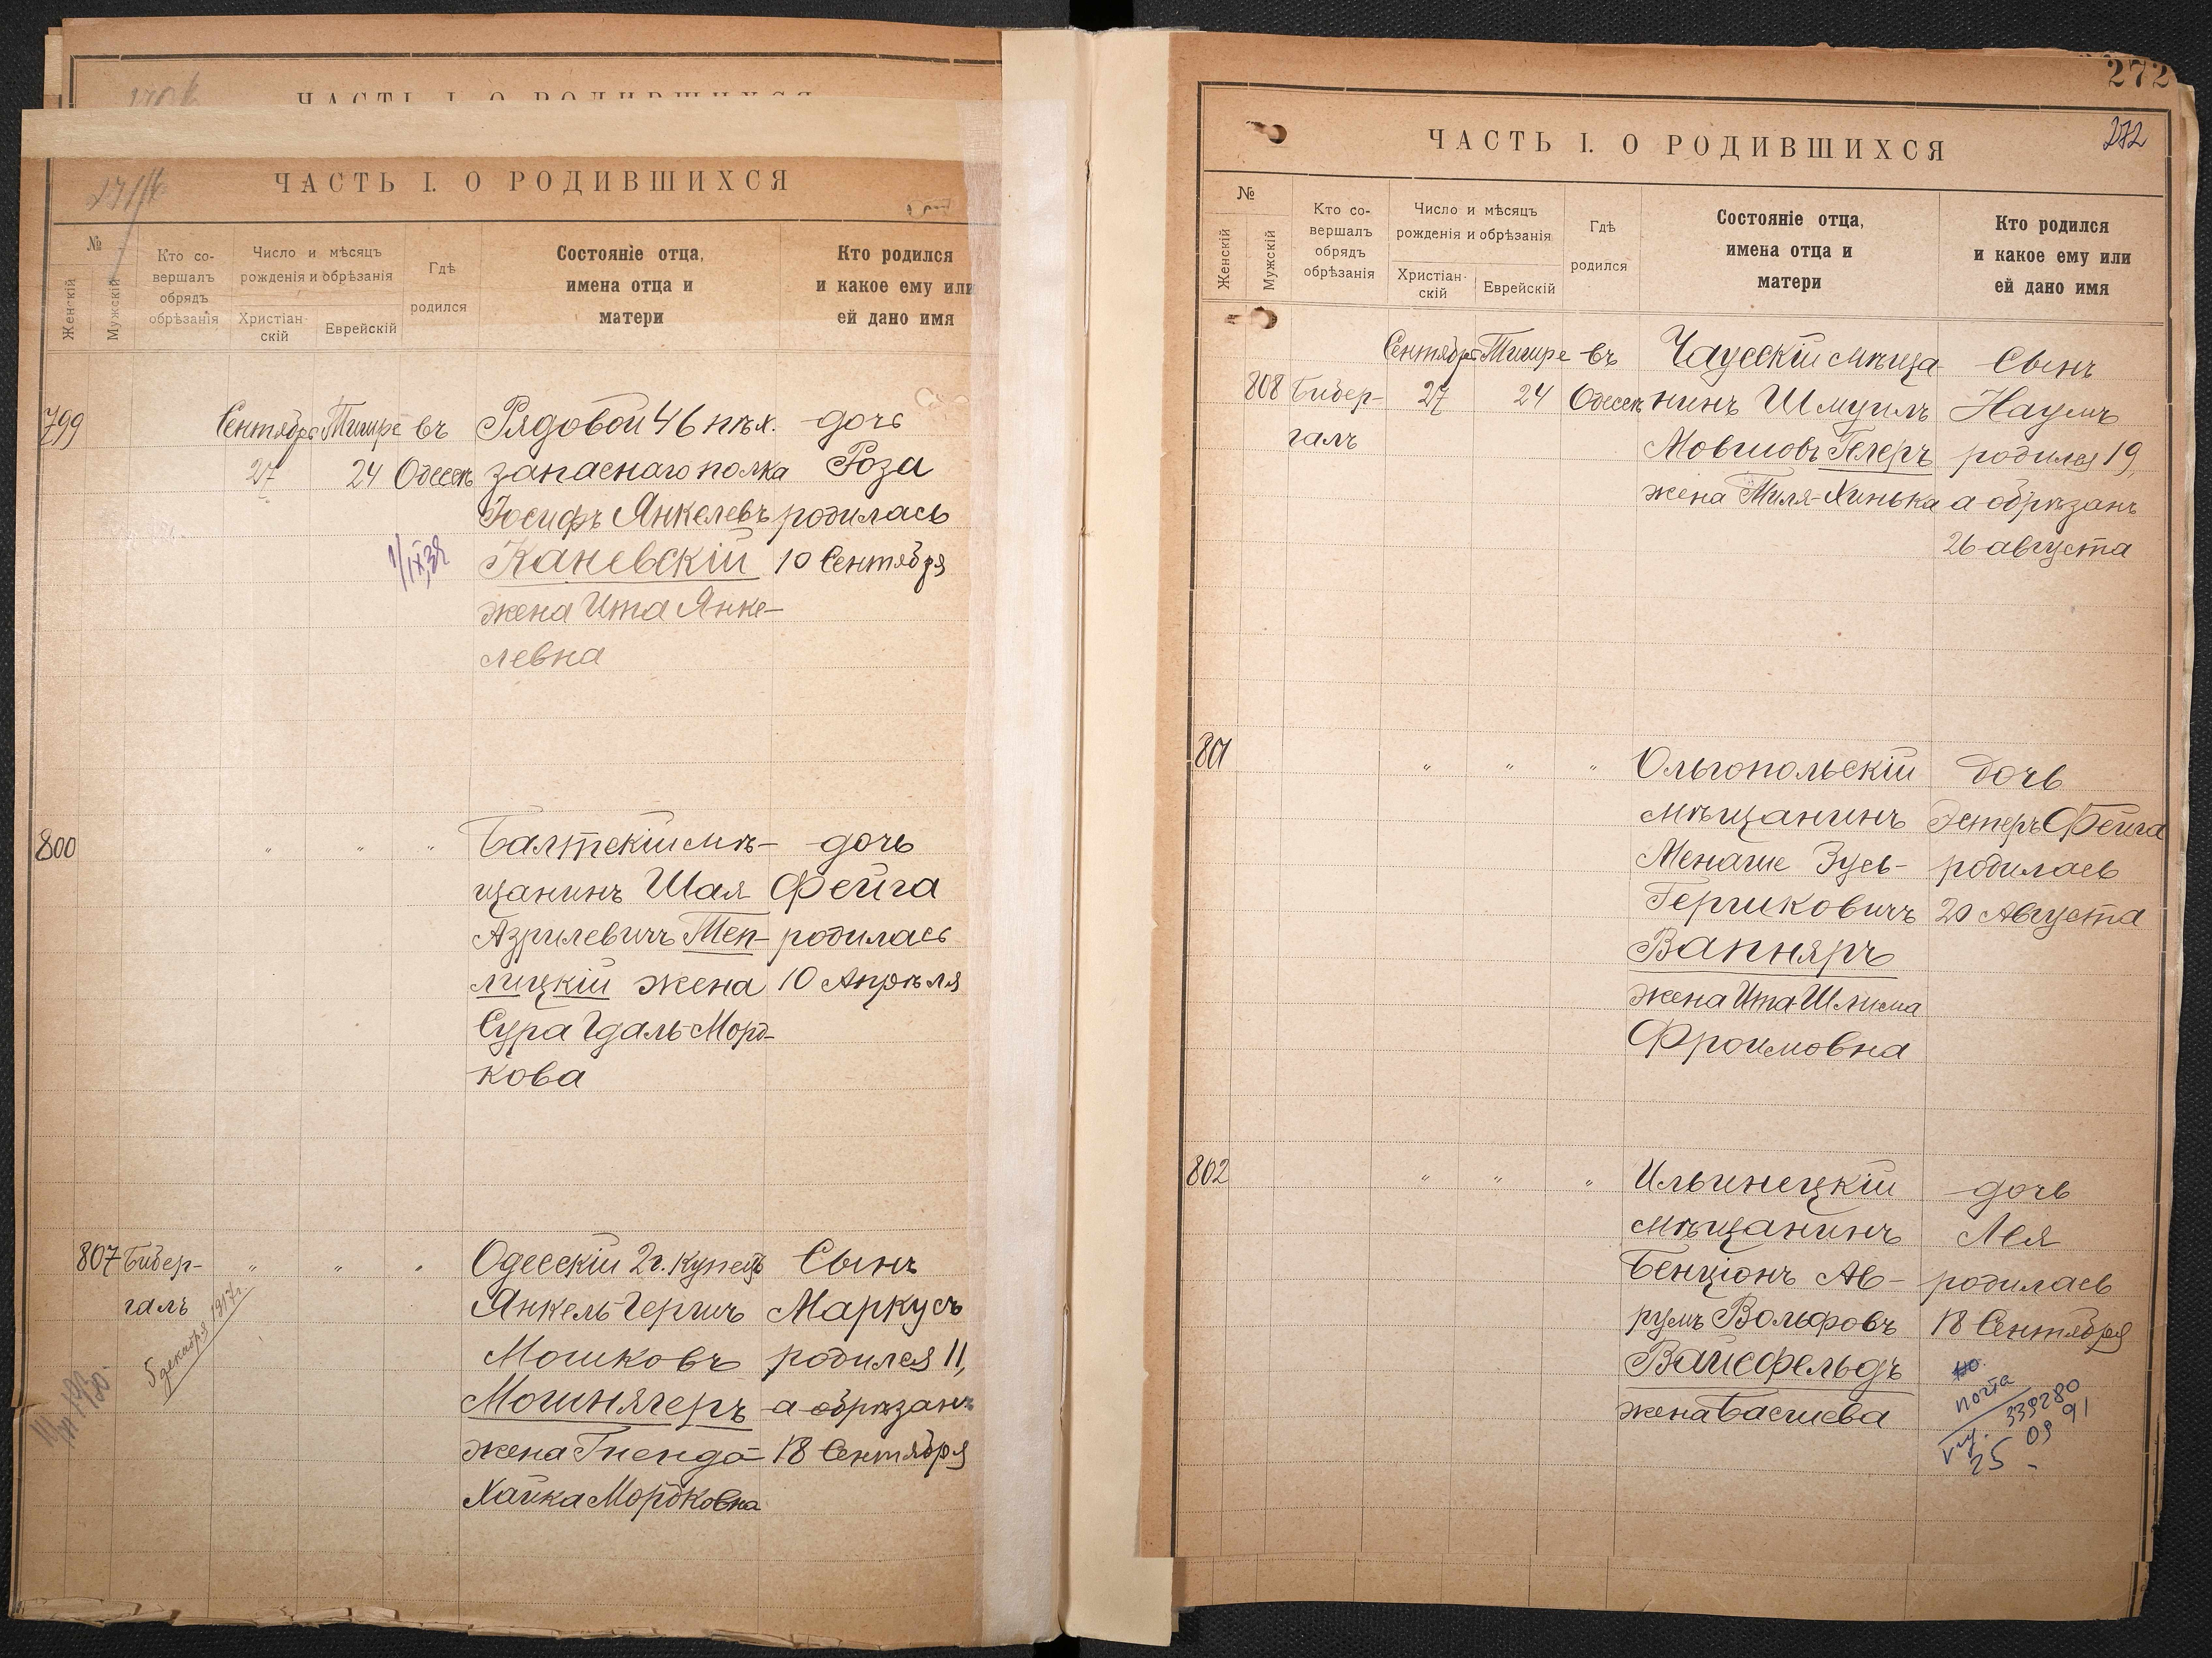 ЧАСТЬ I. О РОДИВШИХСЯ
ЧАСТЬ I. О РОДИВШИХСЯ
№
Женскій
Мужскій
Кто со-
вершалъ
обрядъ
обрѣзанія
Число и мѣсяцъ
рожденія и обрѣзанія
Христіан-
скій
Еврейскій
Гдѣ
родился
Состояніе отца,
имена отца и
матери
Кто родился
и какое ему или
ей дано имя
799
Сентября Тишре въ Рядовой 46 пѣх. дочь
27 24 Одессѣ запаснаго полка Роза
Іосифъ Янкелевъ родилась
Каневскій 10 Сентября
жена Ита Янке-
левна
800 " " " Балтскій мѣ- дочь
щанинъ Шая Фейга
Азрилевичъ Теп- родилась
лицкій жена 10 Апрѣля
Сура Гдаль-Морд-
кова
807 Бибер- " " " Одесскій 2 г. купецъ Сынъ
галъ Янкель-Гершъ Маркусъ
5 декабря 1917 г.
Мошковъ родился 11,
Мошнягеръ а обрѣзанъ
жена Гненда- 18 Сентября
Хайка Мордковна
272
272
ЧАСТЬ I. О РОДИВШИХСЯ
№
Женскій
Мужскій
Кто со-
вершалъ
обрядъ
обрѣзанія
Число и мѣсяцъ
рожденія и обрѣзанія
Христіан-
скій
Еврейскій
Гдѣ
родился
Состояніе отца,
имена отца и
матери
Кто родился
и какое ему или
ей дано имя
Сентября Тишре въ Чаусскій мѣща- Сынъ
808 Бибер- 27 24 Одессѣ нинъ Шмуилъ Наумъ
галъ Мовшовъ Гелеръ родился 19,
жена Тиля-Хинька а обрѣзанъ
26 августа
801 " " " Ольгопольскій дочь
мѣщанинъ Эстеръ Фейга
Менаше Зусь- родилась
Гершковичъ 20 Августа
Вапняръ
жена Ита-Шлима
Фроимовна
802 " " " Ильинецкій дочь
мѣщанинъ Лея
Бенціонъ Ав- родилась
румъ Вольфовъ 18 Сентября
Вайсфельдъ
жена Басшева
почта
339280
25 09 91